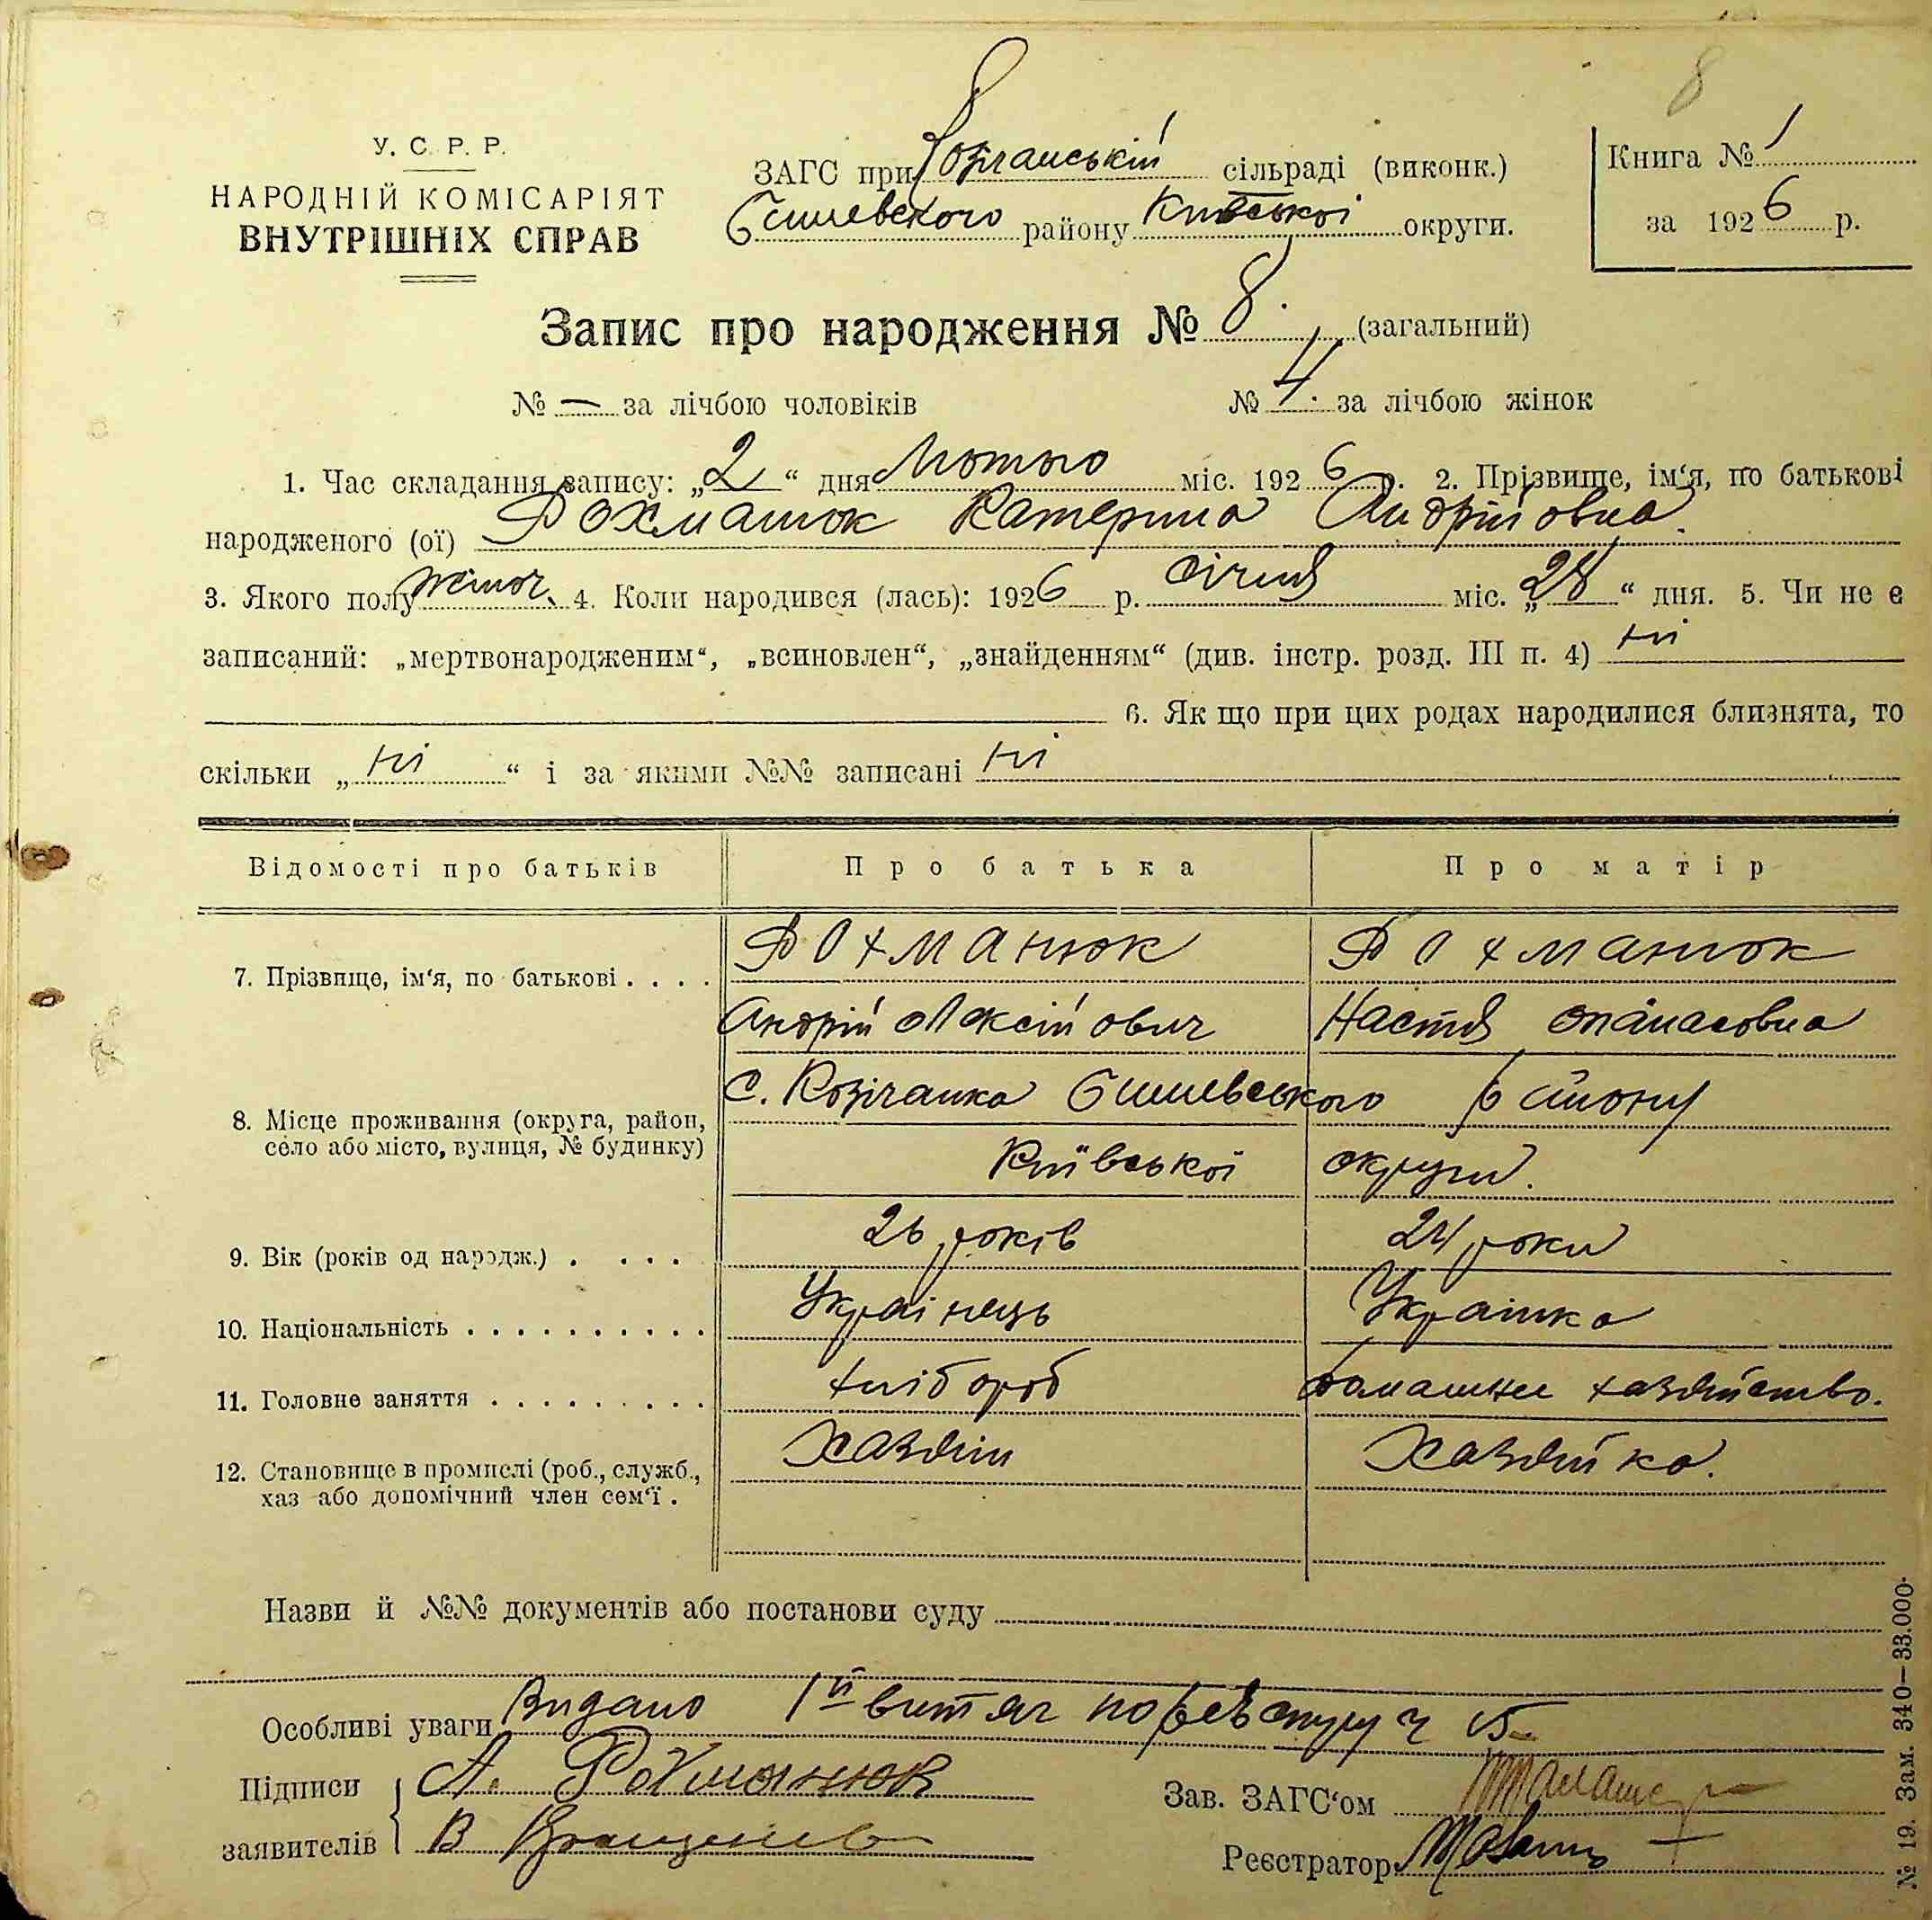 8
У. С. Р. Р.
НАРОДНІЙ КОМІСАРІЯТ
ВНУТРІШНІХ СПРАВ
ЗАГС при Козічанській сільраді (виконк.)
Бишевского району Київської округи.
Книга № 1
за 1926 р.
Запис про народження № 8. (загальний)
№ — за лічбою чоловіків № 4. за лічбою жінок
1. Час складання запису: „2“ дня Лютого міс. 1926 р. 2. Прізвище, ім‘я, по батькові
народженого (ої) Рохманюк Катерина Андрійовна.
3. Якого полу жіноч. 4. Коли народився (лась): 1926 р. січня міс. „28“ дня. 5. Чи не є
записаний: „мертвонародженим“, „всиновлен“, „знайденням“ (див. інстр. розд. III п. 4) ні
6. Як що при цих родах народилися близнята, то
скільки „ні“ і за якими №№ записані ні
Відомості про батьків Про батька Про матір
7. Прізвище, ім‘я, по батькові . . . . Рохманюк Рохманюк
Андрій Олексійович Настя Опанасовна
8. Місце проживання (округа, район, село або місто, вулиця, № будинку) с. Козічанка Бишевського району
Київської округи.
9. Вік (років од народж.) . . . . 26 років 24 роки
10. Національність . . . . . . . . . . Українець Українка
11. Головне заняття . . . . . . . . . хлібороб домашнє хазяйство.
12. Становище в промислі (роб., служб., хаз або допомічний член сем‘ї . Хазяїн Хазяйка.
Назви й №№ документів або постанови суду
Особливі уваги Видано 1й витяг по реєстру ч 15
Підписи заявителів А. Рохманюк
В
Зав. ЗАГС‘ом
Реєстратор
№ 19. Зам. 340—33.000.